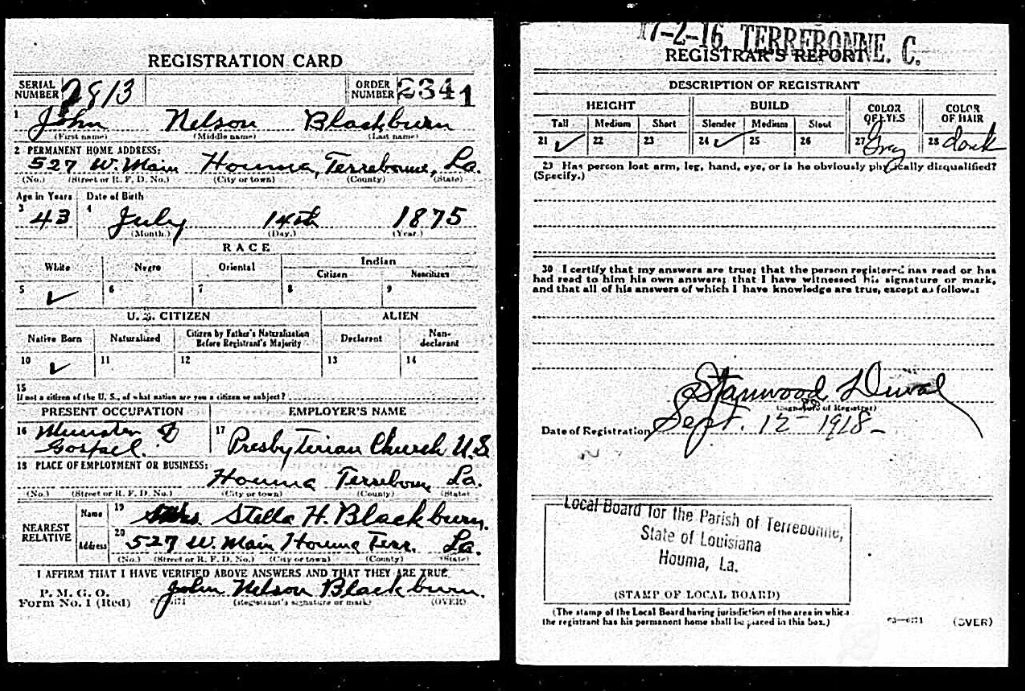 REGISTRATION CARD
SERIAL NUMBER 2813 ORDER NUMBER 2341
1 John Nelson Blackburn
(First name) (Middle name) (Last name)
2 PERMANENT HOME ADDRESS:
527 W. Main Houma, Terrebonne, La.
(No.) (Street or R. F. D. No.) (City or town) (County) (State)
Age in Years Date of Birth
3 43 4 July 14th 1875
(Month.) (Day.) (Year.)
RACE
White Negro Oriental Indian
Citizen Noncitizen
5 ✓ 6 7 8 9
U. S. CITIZEN ALIEN
Native Born Naturalized Citizen by Father's Naturalization Before Registrant's Majority Declarant Non-declarant
10 ✓ 11 12 13 14
15
If not a citizen of the U. S., of what nation are you a citizen or subject?
PRESENT OCCUPATION EMPLOYER'S NAME
16 Minister of Gospel. 17 Presbyterian Church U.S
18 PLACE OF EMPLOYMENT OR BUSINESS:
Houma Terrebonne La.
(No.) (Street or R. F. D. No.) (City or town) (County) (State)
NEAREST RELATIVE Name 19 Mrs. Stella H. Blackburn.
Address 20 527 W. Main Houma Terr. La.
(No.) (Street or R. F. D. No.) (City or town) (County) (State)
I AFFIRM THAT I HAVE VERIFIED ABOVE ANSWERS AND THAT THEY ARE TRUE
P. M. G. O.
Form No. 1 (Red) John Nelson Blackburn.
(Registrant's signature or mark) (OVER)
17-2-16 TERREBONNE. C.
REGISTRAR'S REPORT
DESCRIPTION OF REGISTRANT
HEIGHT BUILD COLOR OF EYES COLOR OF HAIR
Tall Medium Short Slender Medium Stout
21 ✓ 22 23 24 ✓ 25 26 27 Gray 28 dark
29 Has person lost arm, leg, hand, eye, or is he obviously physically disqualified?
(Specify.)
30 I certify that my answers are true; that the person registered has read or has
had read to him his own answers; that I have witnessed his signature or mark,
and that all of his answers of which I have knowledge are true, except as follows:
Stanwood Duval
(Signature of Registrar)
Date of Registration Sept. 12 - 1918 -
Local Board for the Parish of Terrebonne,
State of Louisiana
Houma, La.
(STAMP OF LOCAL BOARD)
(The stamp of the Local Board having jurisdiction of the area in which
the registrant has his permanent home shall be placed in this box.)
(OVER)